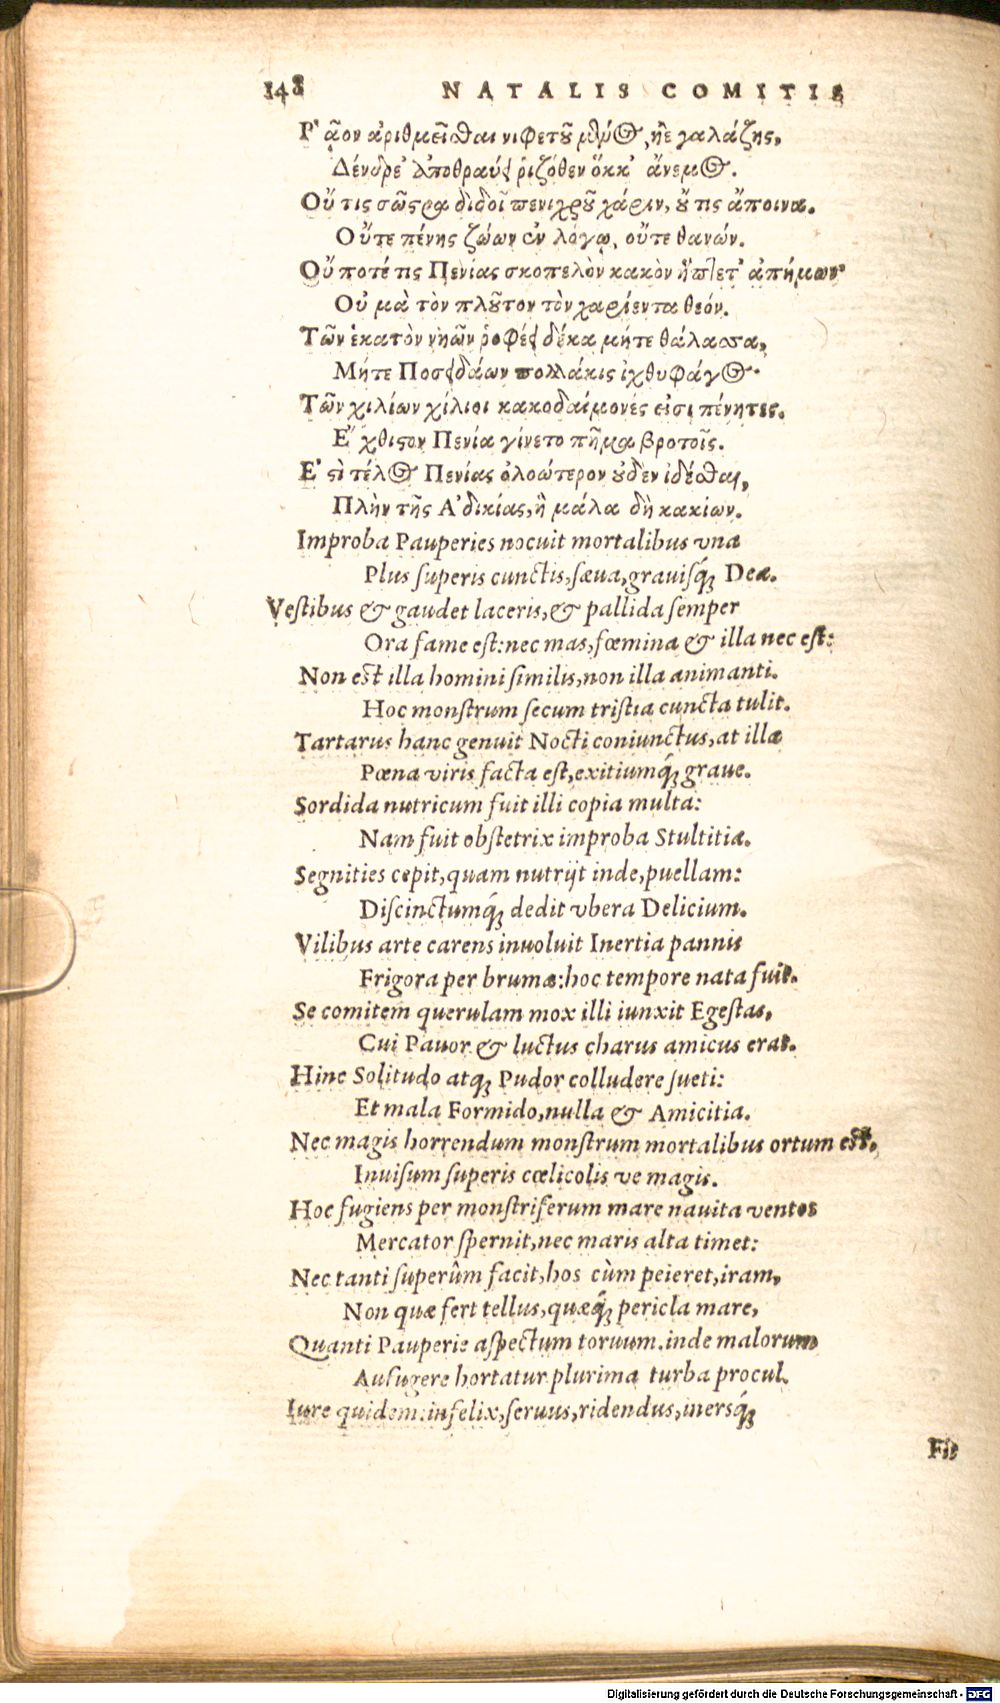 148 NATALIS COMITIS
Ρ᾽ ᾷον ἀριθμεῖσθαι νιφετοῦ μένος, ἠὲ χαλάζης,
Δένδρε᾽ ἀποθραύει ῥιζόθεν ὅκκ᾽ ἄνεμος.
Οὔ τις σῶστρα διδοῖ πενιχροῦ χάριν, οὔ τις ἄποινα.
Οὔτε πένης ζώων ἐν λόγῳ, οὔτε θανών.
Οὔ ποτέ τις Πενίας σκοπελὸν κακὸν ἵπτετ᾽ ἀπήμων
Οὐ μὰ τὸν πλοῦτον τὸν χαρίεντα θεόν.
Τῶν ἑκατὸν νηῶν ῥοφέει δέκα μήτε θάλασσα,
Μήτε Ποσειδάων πολλάκις ἰχθυφάγος.
Τῶν χιλίων χίλιοι κακοδαίμονές εἰσι πένητες.
Ε῎ χθιστον Πενία γίνετο πῆμα βροτοῖς.
Ε᾽ στὶ τέλος Πενίας ὀλοώτερον οὐδὲν ἰδέσθαι,
Πλὴν τῆς Α᾽ δικίας, ἣ μάλα δὴ κακίων.
Improba Pauperies nocuit mortalibus vna
Plus superis cunctis, sæua, grauisq́; Dea.
Vestibus & gaudet laceris, & pallida semper
Ora fame est: nec mas, fœmina & illa nec est:
Non est illa homini similis, non illa animanti.
Hoc monstrum secum tristia cuncta tulit.
Tartarus hanc genuit Nocti coniunctus, at illa
Pœna viris facta est, exitiumq́; graue.
Sordida nutricum fuit illi copia multa:
Nam fuit obstetrix improba Stultitia.
Segnities cepit, quam nutrijt inde, puellam:
Discinctumq́; dedit vbera Delicium.
Vilibus arte carens inuoluit Inertia pannis
Frigora per brumæ: hoc tempore nata fuit.
Se comitem querulam mox illi iunxit Egestas,
Cui Pauor & luctus charus amicus erat.
Hinc Solitudo atq; Pudor colludere sueti:
Et mala Formido, nulla & Amicitia.
Nec magis horrendum monstrum mortalibus ortum est,
Inuisum superis cœlicolis ve magis.
Hoc fugiens per monstriferum mare nauita ventos
Mercator spernit, nec maris alta timet:
Nec tanti superûm facit, hos cùm peieret, iram,
Non quæ fert tellus, quæq́; pericla mare,
Quanti Pauperie aspectum toruum. inde malorum
Aufugere hortatur plurima turba procul.
Iure quidem: infelix, seruus, ridendus, inersq́;
Fit
Digitalisierung gefördert durch die Deutsche Forschungsgemeinschaft - DFG